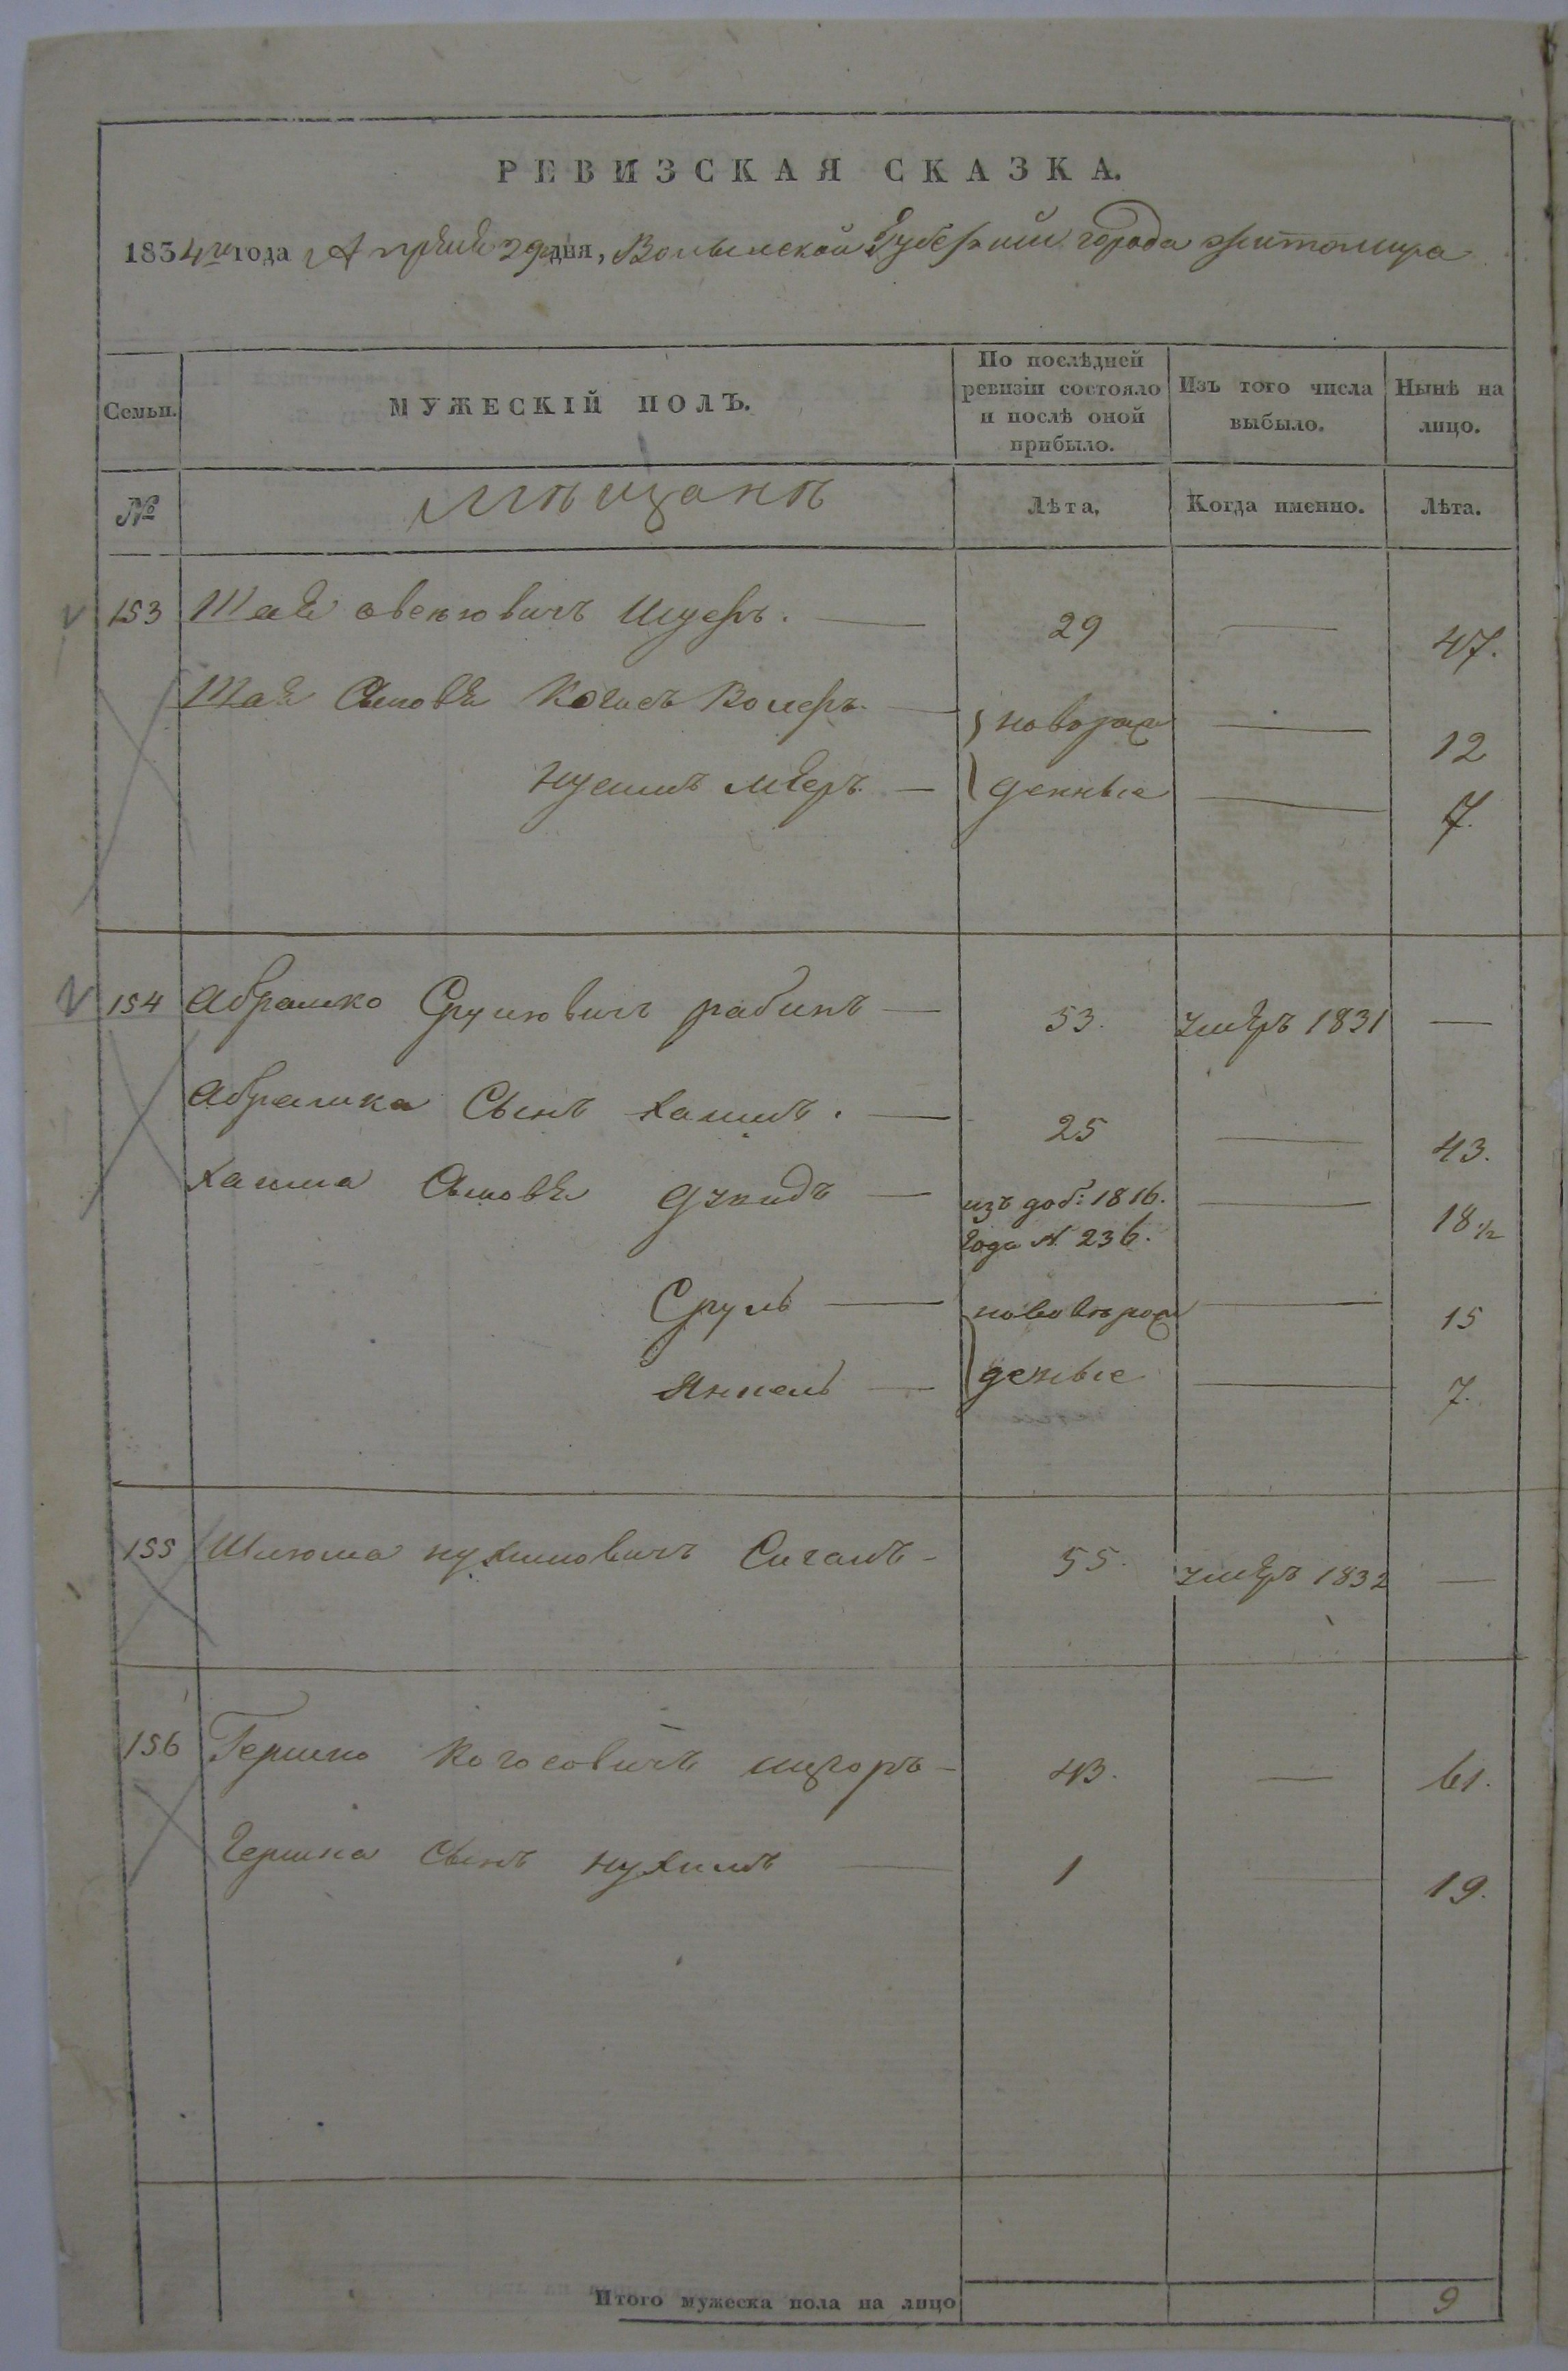 РЕВИЗСКАЯ СКАЗКА.
1834го года Апреля 29 дня, Волынской Губернии города житомира
Семьи. МУЖЕСКІЙ ПОЛЪ. По послѣдней ревизіи состояло и послѣ оной прибыло. Изъ того числа выбыло. Нынѣ на лицо.
№ Мѣщанъ Лѣта. Когда именно. Лѣта.
153 Шая Шуеръ. — 29 — 47.
Шая Сыновя Когосъ Волеръ — новорож — 12
мееръ — денные — 7.
154 Абрамко Срулювичъ рабинъ — 53. умеръ 1831 —
Абрамка Сынъ хаимъ. — 25 — 43.
хаима Сыновя — изъ доб: 1816. — 18 1/2
года № 236.
Сруль — — 15
Янкель — деные — 7.
155 Шлюма нухимовичъ Сиганъ - 55. умеръ 1832 —
156 Гершко Когосовичъ - 43. — 61.
Гершка сынъ нухимъ — 1 — 19.
Итого мужеска пола на лицо 9